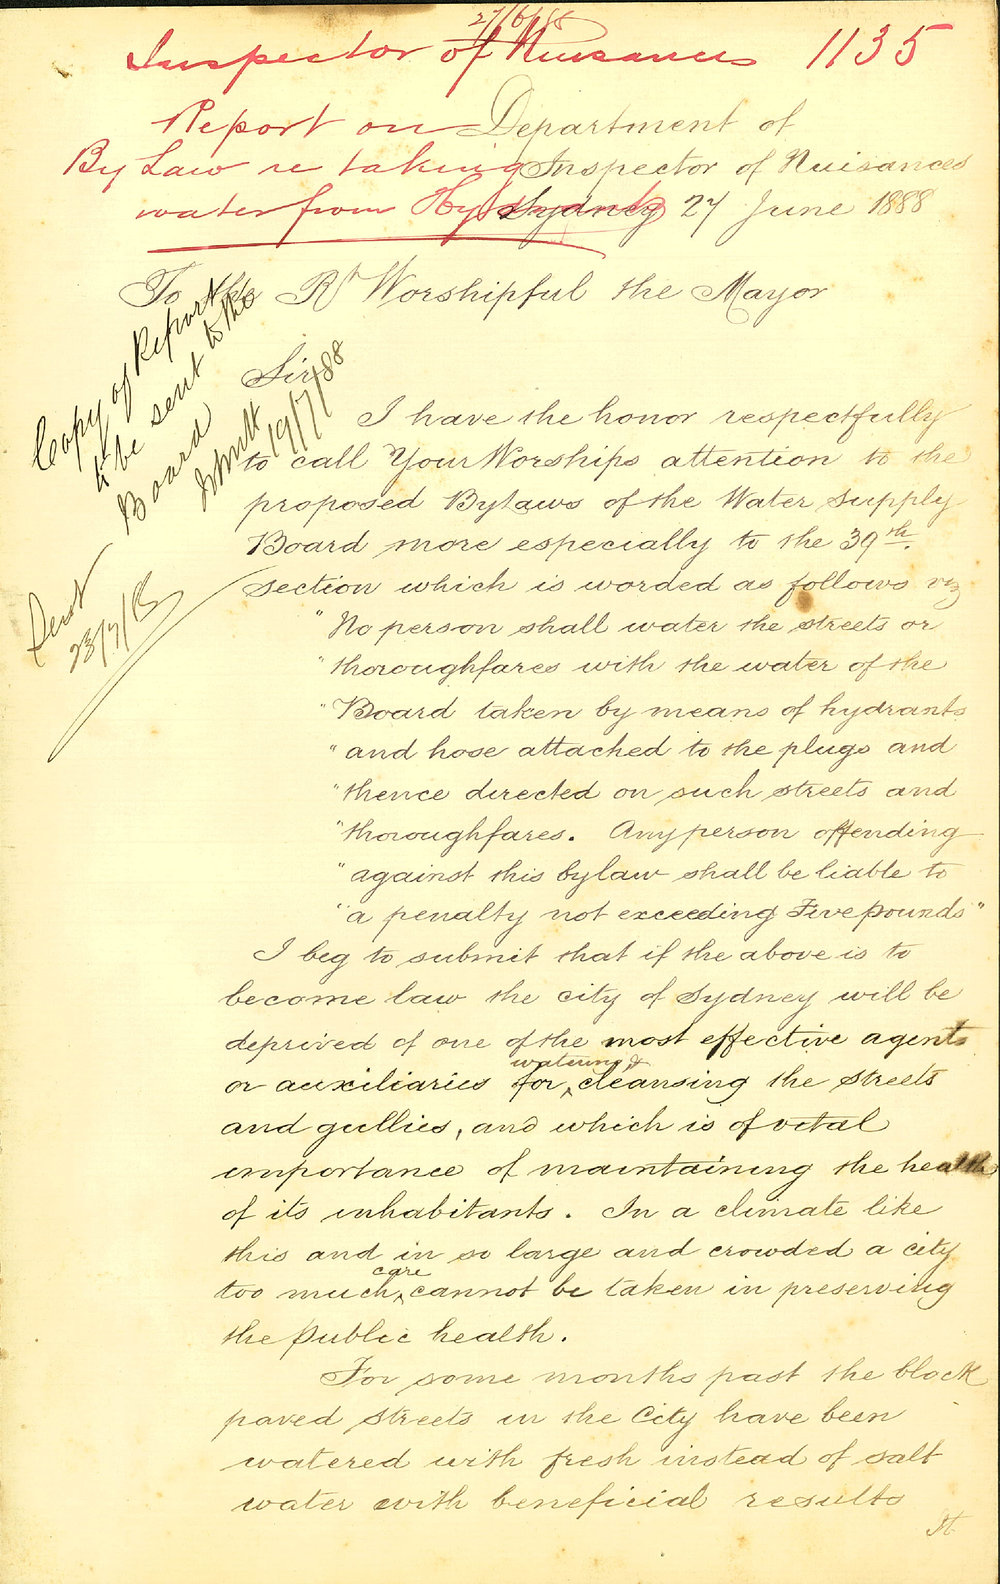 27/6/88
Inspector of Nuisances 1135
Report on
By Law re taking
water from Hydrants
Department of
Inspector of Nuisances
Sydney 27 June 1888
To the Rt Worshipful the Mayor
Copy of Report
to be sent to the
Board
19/7/88
Sent
23/7/88
Sir
I have the honor respectfully
to call Your Worships attention to the
proposed Bylaws of the Water Supply
Board more especially to the 39th
section which is worded as follows viz
"No person shall water the streets or
"thoroughfares with the water of the
"Board taken by means of hydrants
"and hose attached to the plugs and
"thence directed on such streets and
"thoroughfares. Any person offending
"against this bylaw shall be liable to
"a penalty not exceeding Five pounds"
I beg to submit that if the above is to
become law the city of Sydney will be
deprived of one of the most effective agents
or auxiliaries for watering & cleansing the streets
and gullies, and which is of vital
importance of maintaining the health
of its inhabitants. In a climate like
this and in so large and crowded a city
too much care cannot be taken in preserving
the public health.
For some months past the block
paved streets in the City have been
watered with fresh instead of salt
water with beneficial results
It